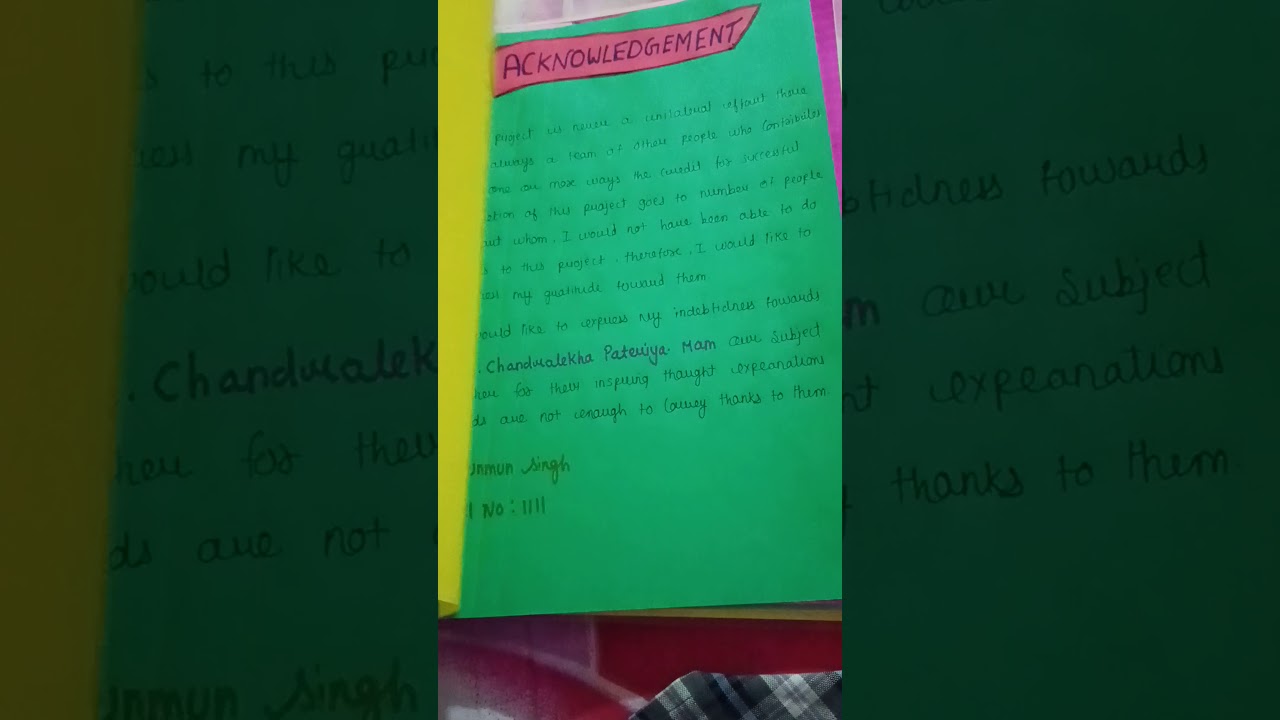 ACKNOWLEDGEMENT
project is never a unilateral effort there
always a team of other people who contributes
one or more ways the credit for successful
of this project goes to number of people
whom, I would not have been able to do
to this project. therefore, I would like to
my gratitude toward them
would like to express my indebtidness towards
. Chandralekha Pateriya Mam our subject
for their inspiring thought expeanations
are not enough to convey thanks to them.
unmun Singh
No: 1111